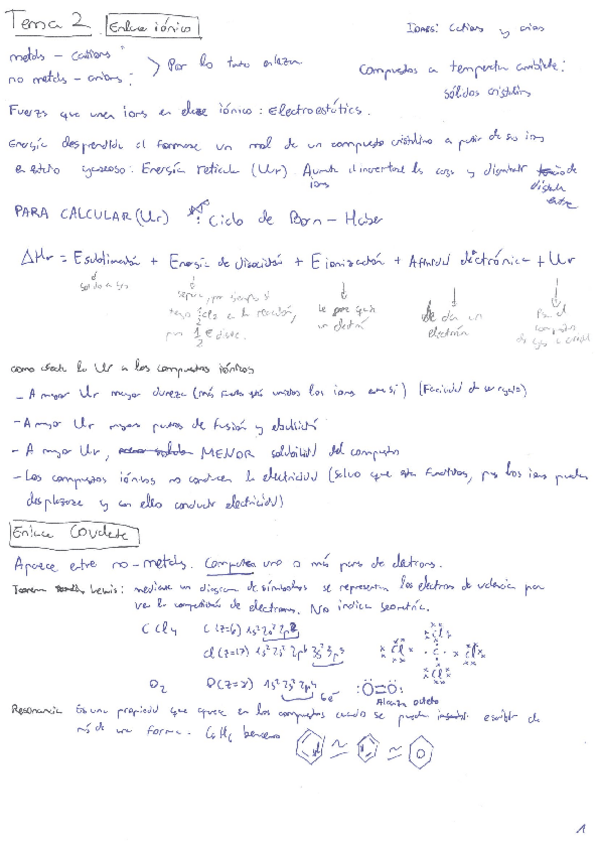 Tema 2 Enlace iónico Iones: cationes y aniones
metales - cationes
no metales - aniones
Por lo tanto
Compuestos a temperatura ambiente:
sólidos cristalinos
Fuerza que unen iones en enlace iónico: Electroestática.
Energía desprendida al formarse un mol de un compuesto cristalino a partir de sus iones
en estado gaseoso: Energía reticular (Ur) Aumenta al incrementar la carga y disminuir
distancia
entre
iones
PARA CALCULAR (Ur) : Ciclo de Born-Haber
ΔHr = Esublimación + Energía de disociación + Eionización + Afinidad electrónica + Ur
solido a gas
separa, por ejemplo si
la reacción,
por 1/2 E disoc.
un electrón
de dar un
electrón
Pasa el
compuesto
de gas a cristal
como afecta la Ur a los compuestos iónicos
- A mayor Ur mayor dureza (más fuerte están unidos los iones entre sí)
- A mayor Ur mayores puntos de fusión y ebullición
- A mayor Ur, MENOR solubilidad del compuesto
- Los compuestos iónicos no conducen la electricidad (salvo que estén fundidos, pues los iones pueden
desplazarse y con ello conducir electricidad)
Enlace Covalente
Aparece entre no-metales. Comparten uno o más pares de electrones.
Lewis: mediante un diagrama de símbolos se representan los electrones de valencia para
ver la compartición de electrones. No indica geometría.
CCl4 C(z=6) 1s² 2s² 2p²
Cl(z=17) 1s² 2s² 2p⁶ 3s² 3p⁵
Cl
Cl C Cl
Cl
O2 O(z=8) 1s² 2s² 2p⁴ 6e⁻ :Ö=Ö:
Alcanza octeto
Resonancia Es una propiedad que aparece en los compuestos cuando se pueden escribir de
más de una forma. C6H6 benceno
1